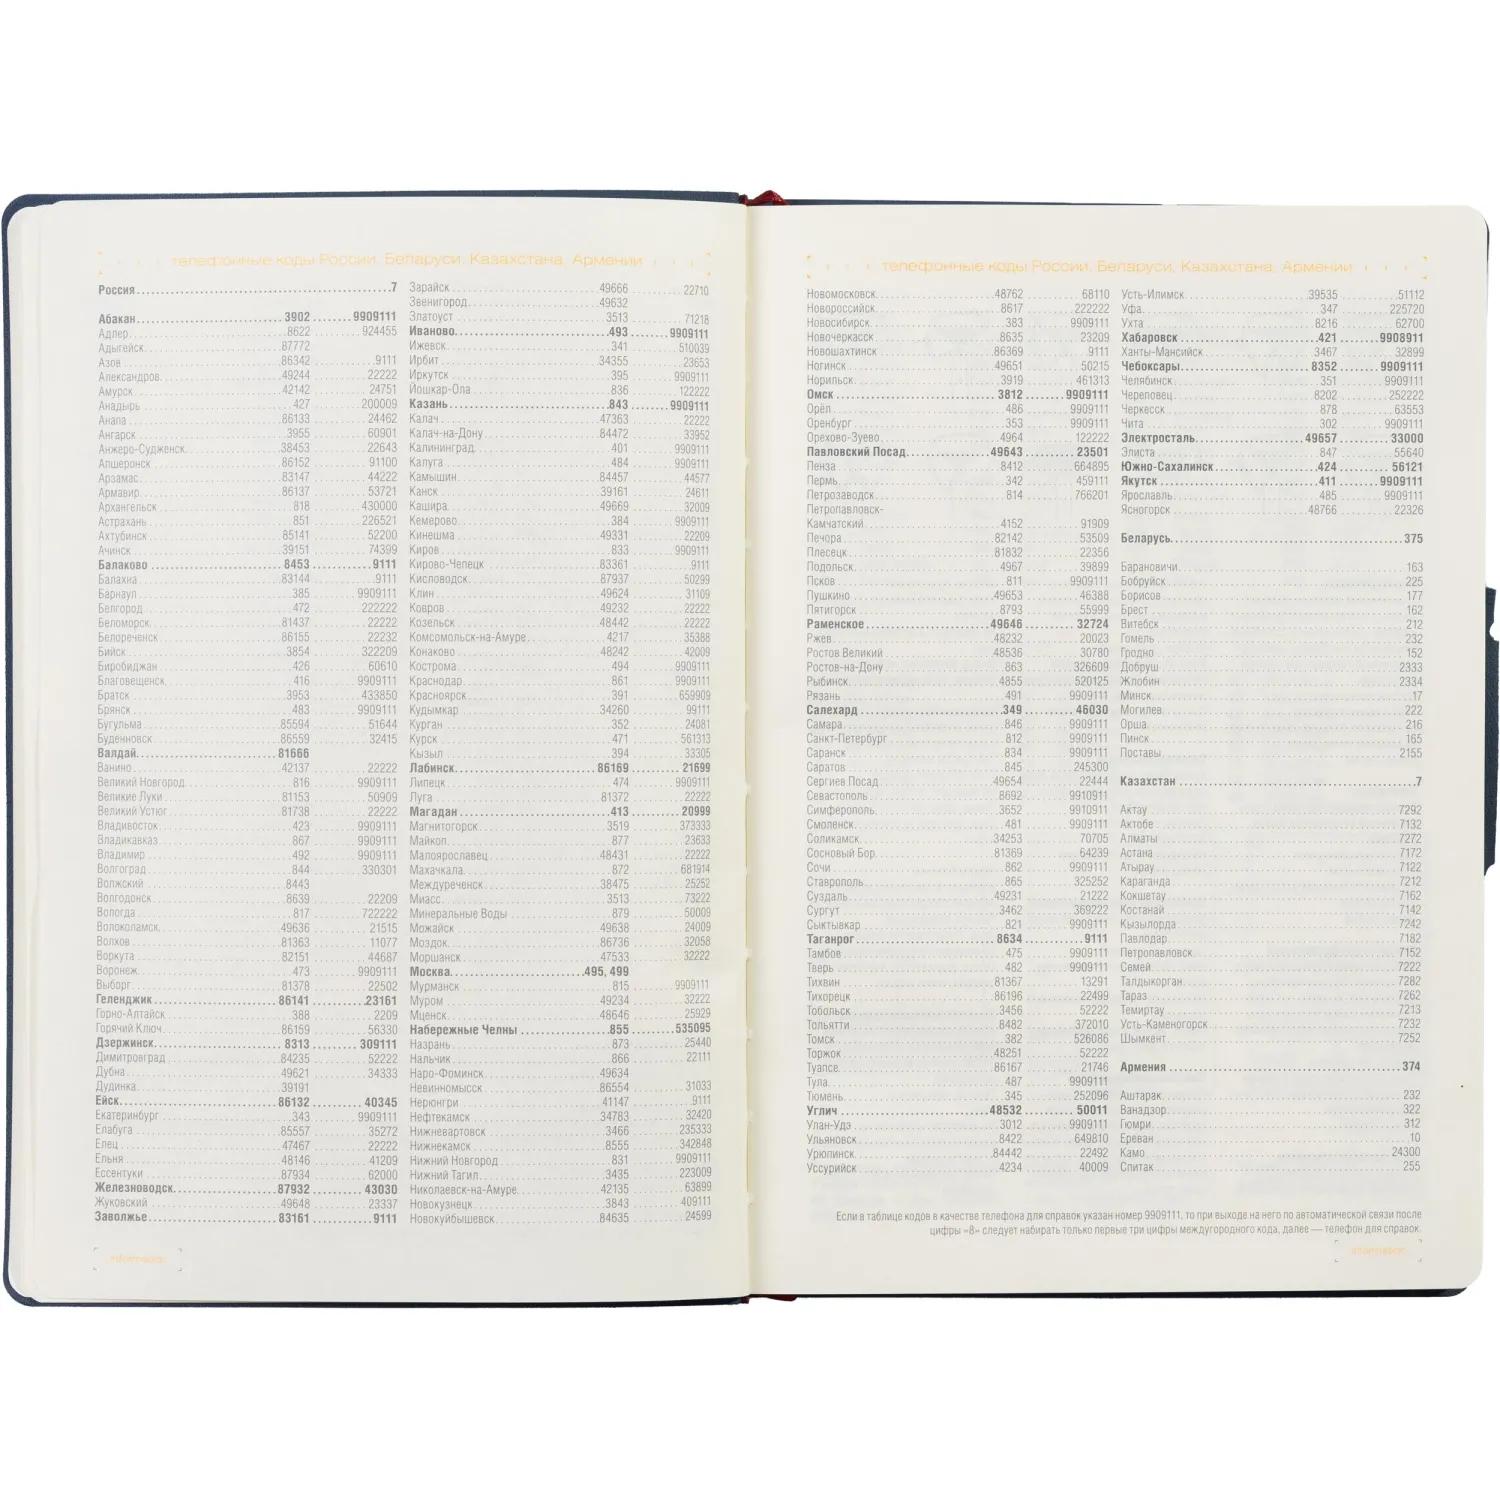 телефонные коды России, Беларуси, Казахстана, Армении
Россия 7
Абакан 3902 9909111
Адлер 8622 924455
Адыгейск 87772
Азов 86342 9111
Александров 49244 22222
Амурск 42142 24751
Анадырь 427 200009
Анапа 86133 24462
Ангарск 3955 60901
Анжеро-Судженск 38453 22643
Апшеронск 86152 91100
Арзамас 83147 44222
Армавир 86137 53721
Архангельск 818 430000
Астрахань 851 226521
Ахтубинск 85141 52200
Ачинск 39151 74399
Балаково 8453 9111
Балахна 83144 9111
Барнаул 385 9909111
Белгород 472 222222
Беломорск 81437 22222
Белореченск 86155 22232
Бийск 3854 322209
Биробиджан 426 60610
Благовещенск 416 9909111
Братск 3953 433850
Брянск 483 9909111
Бугульма 85594 51644
Буденновск 86559 32415
Валдай 81666
Ванино 42137 22222
Великий Новгород 816 9909111
Великие Луки 81153 50909
Великий Устюг 81738 22222
Владивосток 423 9909111
Владикавказ 867 9909111
Владимир 492 9909111
Волгоград 844 330301
Волжский 8443
Волгодонск 8639 22209
Вологда 817 722222
Волоколамск 49636 21515
Волхов 81363 11077
Воркута 82151 44687
Воронеж 473 9909111
Выборг 81378 22502
Геленджик 86141 23161
Горно-Алтайск 388 2209
Горячий Ключ 86159 56330
Дзержинск 8313 309111
Димитровград 84235 52222
Дубна 49621 34333
Дудинка 39191
Ейск 86132 40345
Екатеринбург 343 9909111
Елабуга 85557 35272
Елец 47467 22222
Ельня 48146 41209
Ессентуки 87934 62000
Железноводск 87932 43030
Жуковский 49648 23337
Заволжье 83161 9111
Зарайск 49666 22710
Звенигород 49632
Златоуст 3513 71218
Иваново 493 9909111
Ижевск 341 510039
Ирбит 34355 23653
Иркутск 395 9909111
Йошкар-Ола 836 122222
Казань 843 9909111
Калач 47363 22222
Калач-на-Дону 84472 33952
Калининград 401 9909111
Калуга 484 9909111
Камышин 84457 44577
Канск 39161 24611
Кашира 49669 32009
Кемерово 384 9909111
Кинешма 49331 22209
Киров 833 9909111
Кирово-Чепецк 83361 9111
Кисловодск 87937 50299
Клин 49624 31109
Ковров 49232 22222
Козельск 48442 22222
Комсомольск-на-Амуре 4217 35388
Конаково 48242 42009
Кострома 494 9909111
Краснодар 861 9909111
Красноярск 391 659909
Кудымкар 34260 99111
Курган 352 24081
Курск 471 561313
Кызыл 394 33305
Лабинск 86169 21699
Липецк 474 9909111
Луга 81372 22222
Магадан 413 20999
Магнитогорск 3519 373333
Майкоп 877 23633
Малоярославец 48431 22222
Махачкала 872 681914
Междуреченск 38475 25252
Миасс 3513 73222
Минеральные Воды 879 50009
Можайск 49638 24009
Моздок 86736 32058
Моршанск 47533 32222
Москва 495, 499
Мурманск 815 9909111
Муром 49234 32222
Мценск 48646 25929
Набережные Челны 855 535095
Назрань 873 25440
Нальчик 866 22111
Наро-Фоминск 49634
Невинномысск 86554 31033
Нерюнгри 41147 9111
Нефтекамск 34783 32420
Нижневартовск 3466 235333
Нижнекамск 8555 342848
Нижний Новгород 831 9909111
Нижний Тагил 3435 223009
Николаевск-на-Амуре 42135 63899
Новокузнецк 3843 409111
Новокуйбышевск 84635 24599
телефонные коды России, Беларуси, Казахстана, Армении
Новомосковск 48762 68110
Новороссийск 8617 222222
Новосибирск 383 9909111
Новочеркасск 8635 23209
Новошахтинск 86369 9111
Ногинск 49651 50215
Норильск 3919 461313
Омск 3812 9909111
Орёл 486 9909111
Оренбург 353 9909111
Орехово-Зуево 4964 122222
Павловский Посад 49643 23501
Пенза 8412 664895
Пермь 342 459111
Петрозаводск 814 766201
Петропавловск-
Камчатский 4152 91909
Печора 82142 53509
Плесецк 81832 22356
Подольск 4967 39899
Псков 811 9909111
Пушкино 49653 46388
Пятигорск 8793 55999
Раменское 49646 32724
Ржев 48232 20023
Ростов Великий 48536 30780
Ростов-на-Дону 863 326609
Рыбинск 4855 520125
Рязань 491 9909111
Салехард 349 46030
Самара 846 9909111
Санкт-Петербург 812 9909111
Саранск 834 9909111
Саратов 845 245300
Сергиев Посад 49654 22444
Севастополь 8692 9910911
Симферополь 3652 9910911
Смоленск 481 9909111
Соликамск 34253 70705
Сосновый Бор 81369 64239
Сочи 862 9909111
Ставрополь 865 325252
Суздаль 49231 21222
Сургут 3462 369222
Сыктывкар 821 9909111
Таганрог 8634 9111
Тамбов 475 9909111
Тверь 482 9909111
Тихвин 81367 13291
Тихорецк 86196 22499
Тобольск 3456 52222
Тольятти 8482 372010
Томск 382 526086
Торжок 48251 52222
Туапсе 86167 21746
Тула 487 9909111
Тюмень 345 252096
Углич 48532 50011
Улан-Удэ 3012 9909111
Ульяновск 8422 649810
Урюпинск 84442 22492
Уссурийск 4234 40009
Усть-Илимск 39535 51112
Уфа 347 225720
Ухта 8216 62700
Хабаровск 421 9908911
Ханты-Мансийск 3467 32899
Чебоксары 8352 9909111
Челябинск 351 9909111
Череповец 8202 252222
Черкесск 878 63553
Чита 302 9909111
Электросталь 49657 33000
Элиста 847 55640
Южно-Сахалинск 424 56121
Якутск 411 9909111
Ярославль 485 9909111
Ясногорск 48766 22326
Беларусь 375
Барановичи 163
Бобруйск 225
Борисов 177
Брест 162
Витебск 212
Гомель 232
Гродно 152
Добруш 2333
Жлобин 2334
Минск 17
Могилев 222
Орша 216
Пинск 165
Поставы 2155
Казахстан 7
Актау 7292
Актобе 7132
Алматы 7272
Астана 7172
Атырау 7122
Караганда 7212
Кокшетау 7162
Костанай 7142
Кызылорда 7242
Павлодар 7182
Петропавловск 7152
Семей 7222
Талдыкорган 7282
Тараз 7262
Темиртау 7213
Усть-Каменогорск 7232
Шымкент 7252
Армения 374
Аштарак 232
Ванадзор 322
Гюмри 312
Ереван 10
Камо 24300
Спитак 255
Если в таблице кодов в качестве телефона для справок указан номер 9909111, то при выходе на него по автоматической связи после
цифры «8» следует набирать только первые три цифры междугородного кода, далее — телефон для справок.